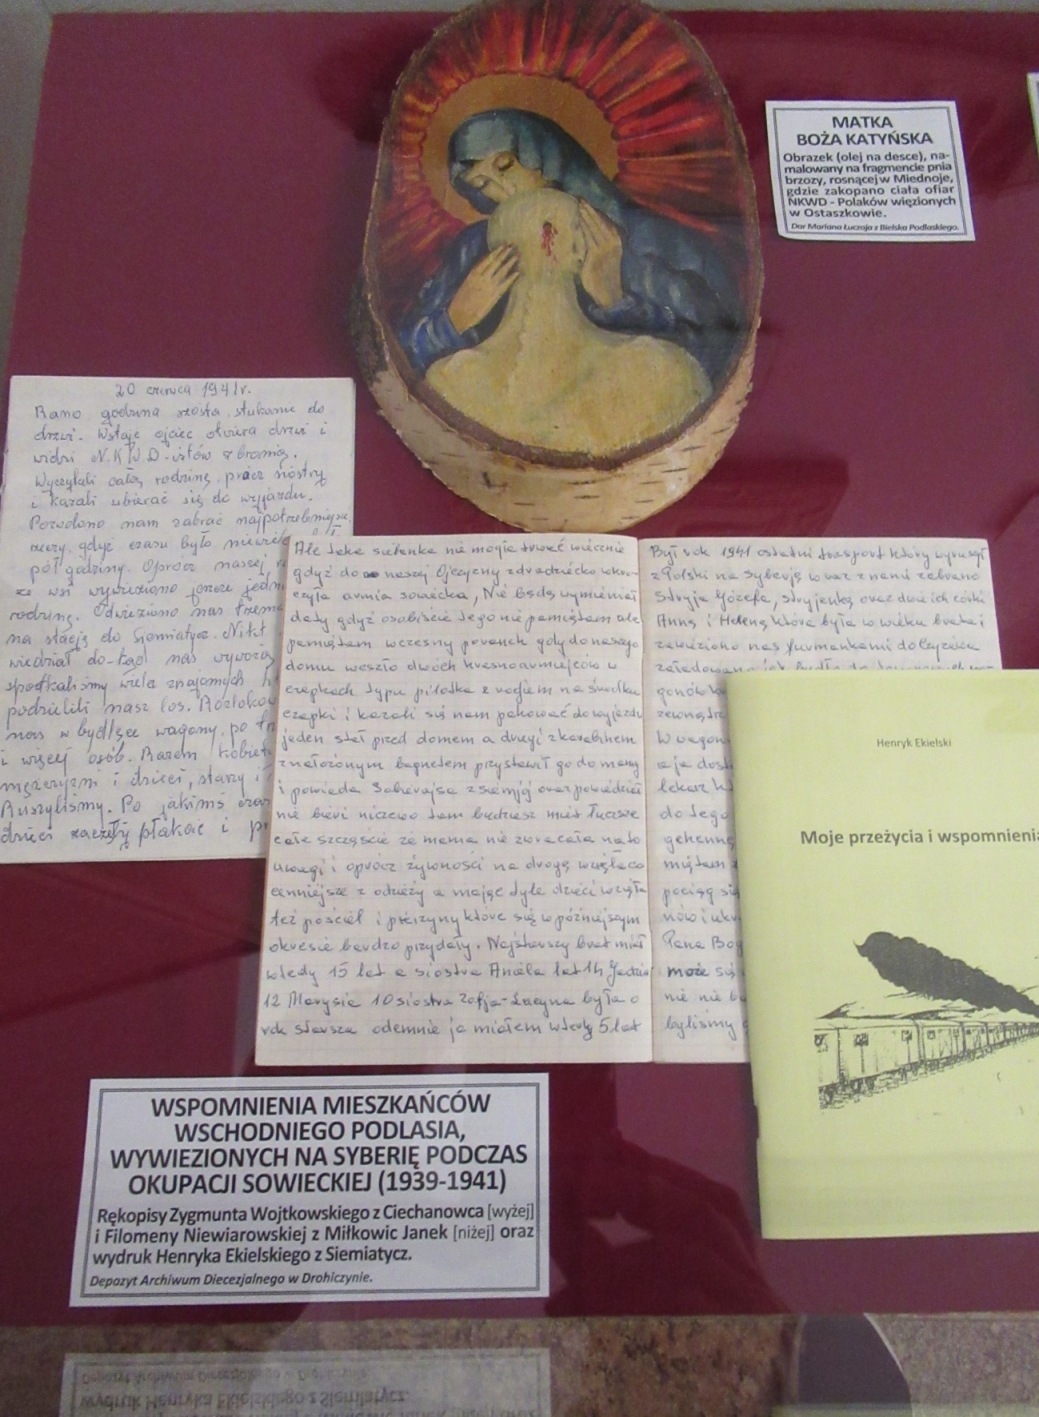 MATKA
BOŻA KATYŃSKA
Obrazek (olej na desce), na-
malowany na fragmencie pnia
brzozy, rosnącej w Miednoje,
gdzie zakopano ciała ofiar
NKWD - Polaków więzionych
w Ostaszkowie.
Dar Mariana Łuczaja z Bielska Podlaskiego.
20 czerwca 1941r.
Rano godzina szósta, stukanie do
drzwi. Wstaje ojciec otwiera drzwi i
widzi N.K.W.D-istów z bronią.
Wyczytali całą rodzinę, prócz siostry
i kazali ubierać się do wyjazdu.
Pozwolono nam zabrać najpotrzebniejsze
rzeczy, gdyż czasu było
pół godziny. Oprócz naszej
ze wsi wywieziono jeszcze
rodzinę. Odwieziono nas
na stację do Siemiatycz. Nikt
wiedział do-kąd nas
spotkaliśmy wiele znajomych
podzielili nasz los.
nas w bydlęce wagony, po
i więcej osób. Razem
mężczyzni i dzieci, starzy i
Ruszyliśmy. Po jakimś
dzieci zaczęły płakać i
Ale taka sielanka nie mogła trwać wiecznie
gdyż do naszej Ojczyzny zdradziecko wkro-
czyła armia sowiecka, Nie będę wymieniał
daty gdyż osobiście tego nie pamiętam ale
pamiętam wczesny poranek gdy do naszego
domu weszło dwóch krasnoarmiejców w
czapkach typu pilotka z rogiem na środku
czapki i kazali się nam pakować do wyjazdu
jeden stał przed domem a drugi z karabinem
z nałożonym bagnetem przystawił go do mamy
i powieda Sabirajsa z siemjoj oraz powiedział
nie bieri niczewo tam budziesz mieć
całe szczęście że mama nie zwracała na to
uwagi i oprócz żywności na drogę wzięła co
cenniejsze z odzieży a mając tyle dzieci wzięła
też pościel i pierzyny które się w późniejszym
okresie bardzo przydały. Najstarszy brat miał
wtedy 15 lat a siostra Aniela lat 14
12 Marysia 10 siostra Zofja-Lucyna była o
rok starsza odemnie ja miałem wtedy 5 lat
Był rok 1941 ostatni trasport który wyruszył
z Polski na Syberję w raz z nami zabrano
Stryja Józefa, stryjenkę oraz dwie ich córki
Annę i Helenę które były w wieku brata i
zawieziono nas furmankami do Czyżewa
załadowano jak bydło do
gonów
W wagon
a ja
lekarz
do tego
gehenną
pociąg się
Pana
może
nie nie
byliśmy
Henryk Ekielski
Moje przeżycia i wspomnienia
WSPOMNIENIA MIESZKAŃCÓW
WSCHODNIEGO PODLASIA,
WYWIEZIONYCH NA SYBERIĘ PODCZAS
OKUPACJI SOWIECKIEJ (1939-1941)
Rękopisy Zygmunta Wojtkowskiego z Ciechanowca [wyżej]
i Filomeny Niewiarowskiej z Miłkowic Janek [niżej] oraz
wydruk Henryka Ekielskiego z Siemiatycz.
Depozyt Archiwum Diecezjalnego w Drohiczynie.